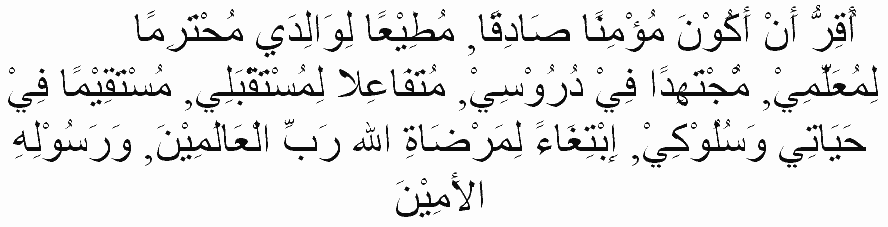 أَقِرُّ أَنْ أَكُوْنَ مُؤْمِنًا صَادِقًا, مُطِيْعًا لِوَالِدَي مُحْتَرِمًا
لِمُعَلِّمِيْ, مُجْتَهِدًا فِيْ دُرُوْسِيْ, مُتَفَاعِلا لِمُسْتَقْبَلِي, مُسْتَقِيْمًا فِيْ
حَيَاتِي وَسُلُوْكِيْ, إِبْتِغَاءً لِمَرْضَاةِ الله رَبِّ الْعَالَمِيْنَ, وَرَسُوْلِهِ
الأَمِيْنَ